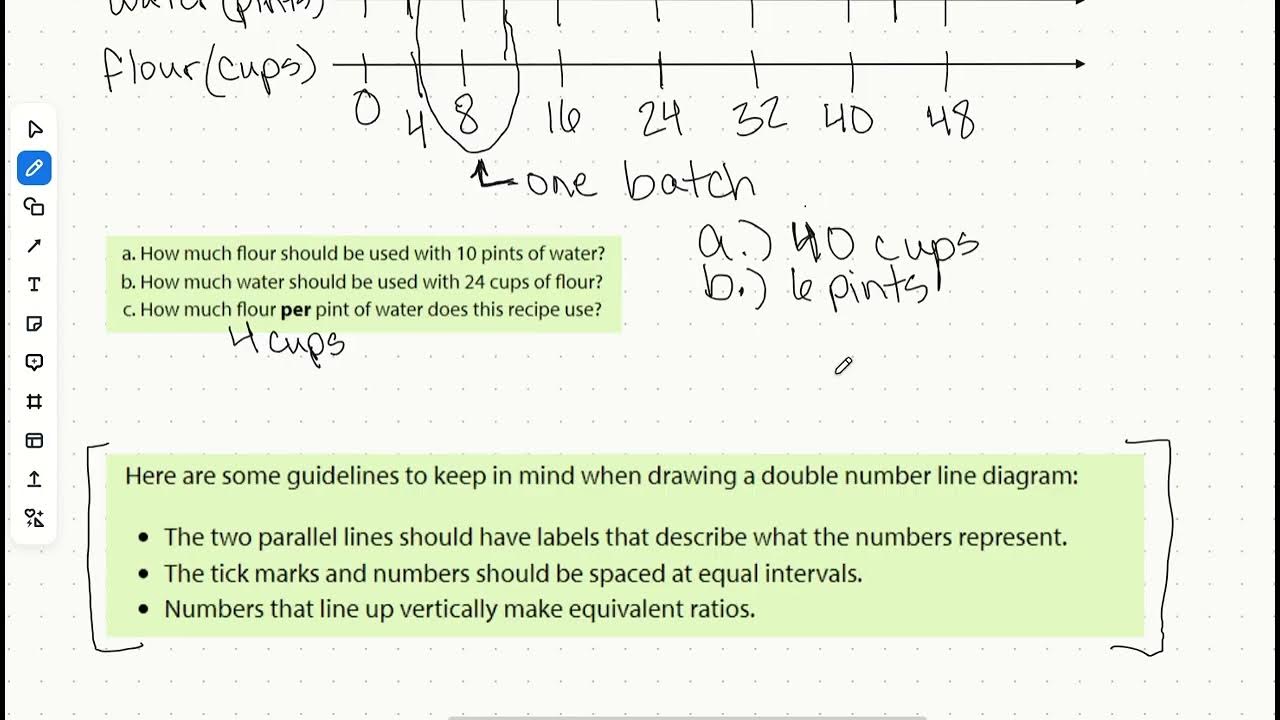 water (pints)
flour (cups)
0 4 8 16 24 32 40 48
one batch
a. How much flour should be used with 10 pints of water?
b. How much water should be used with 24 cups of flour?
c. How much flour per pint of water does this recipe use?
4 cups
a.) 40 cups
b.) 6 pints
T
Here are some guidelines to keep in mind when drawing a double number line diagram:
• The two parallel lines should have labels that describe what the numbers represent.
• The tick marks and numbers should be spaced at equal intervals.
• Numbers that line up vertically make equivalent ratios.